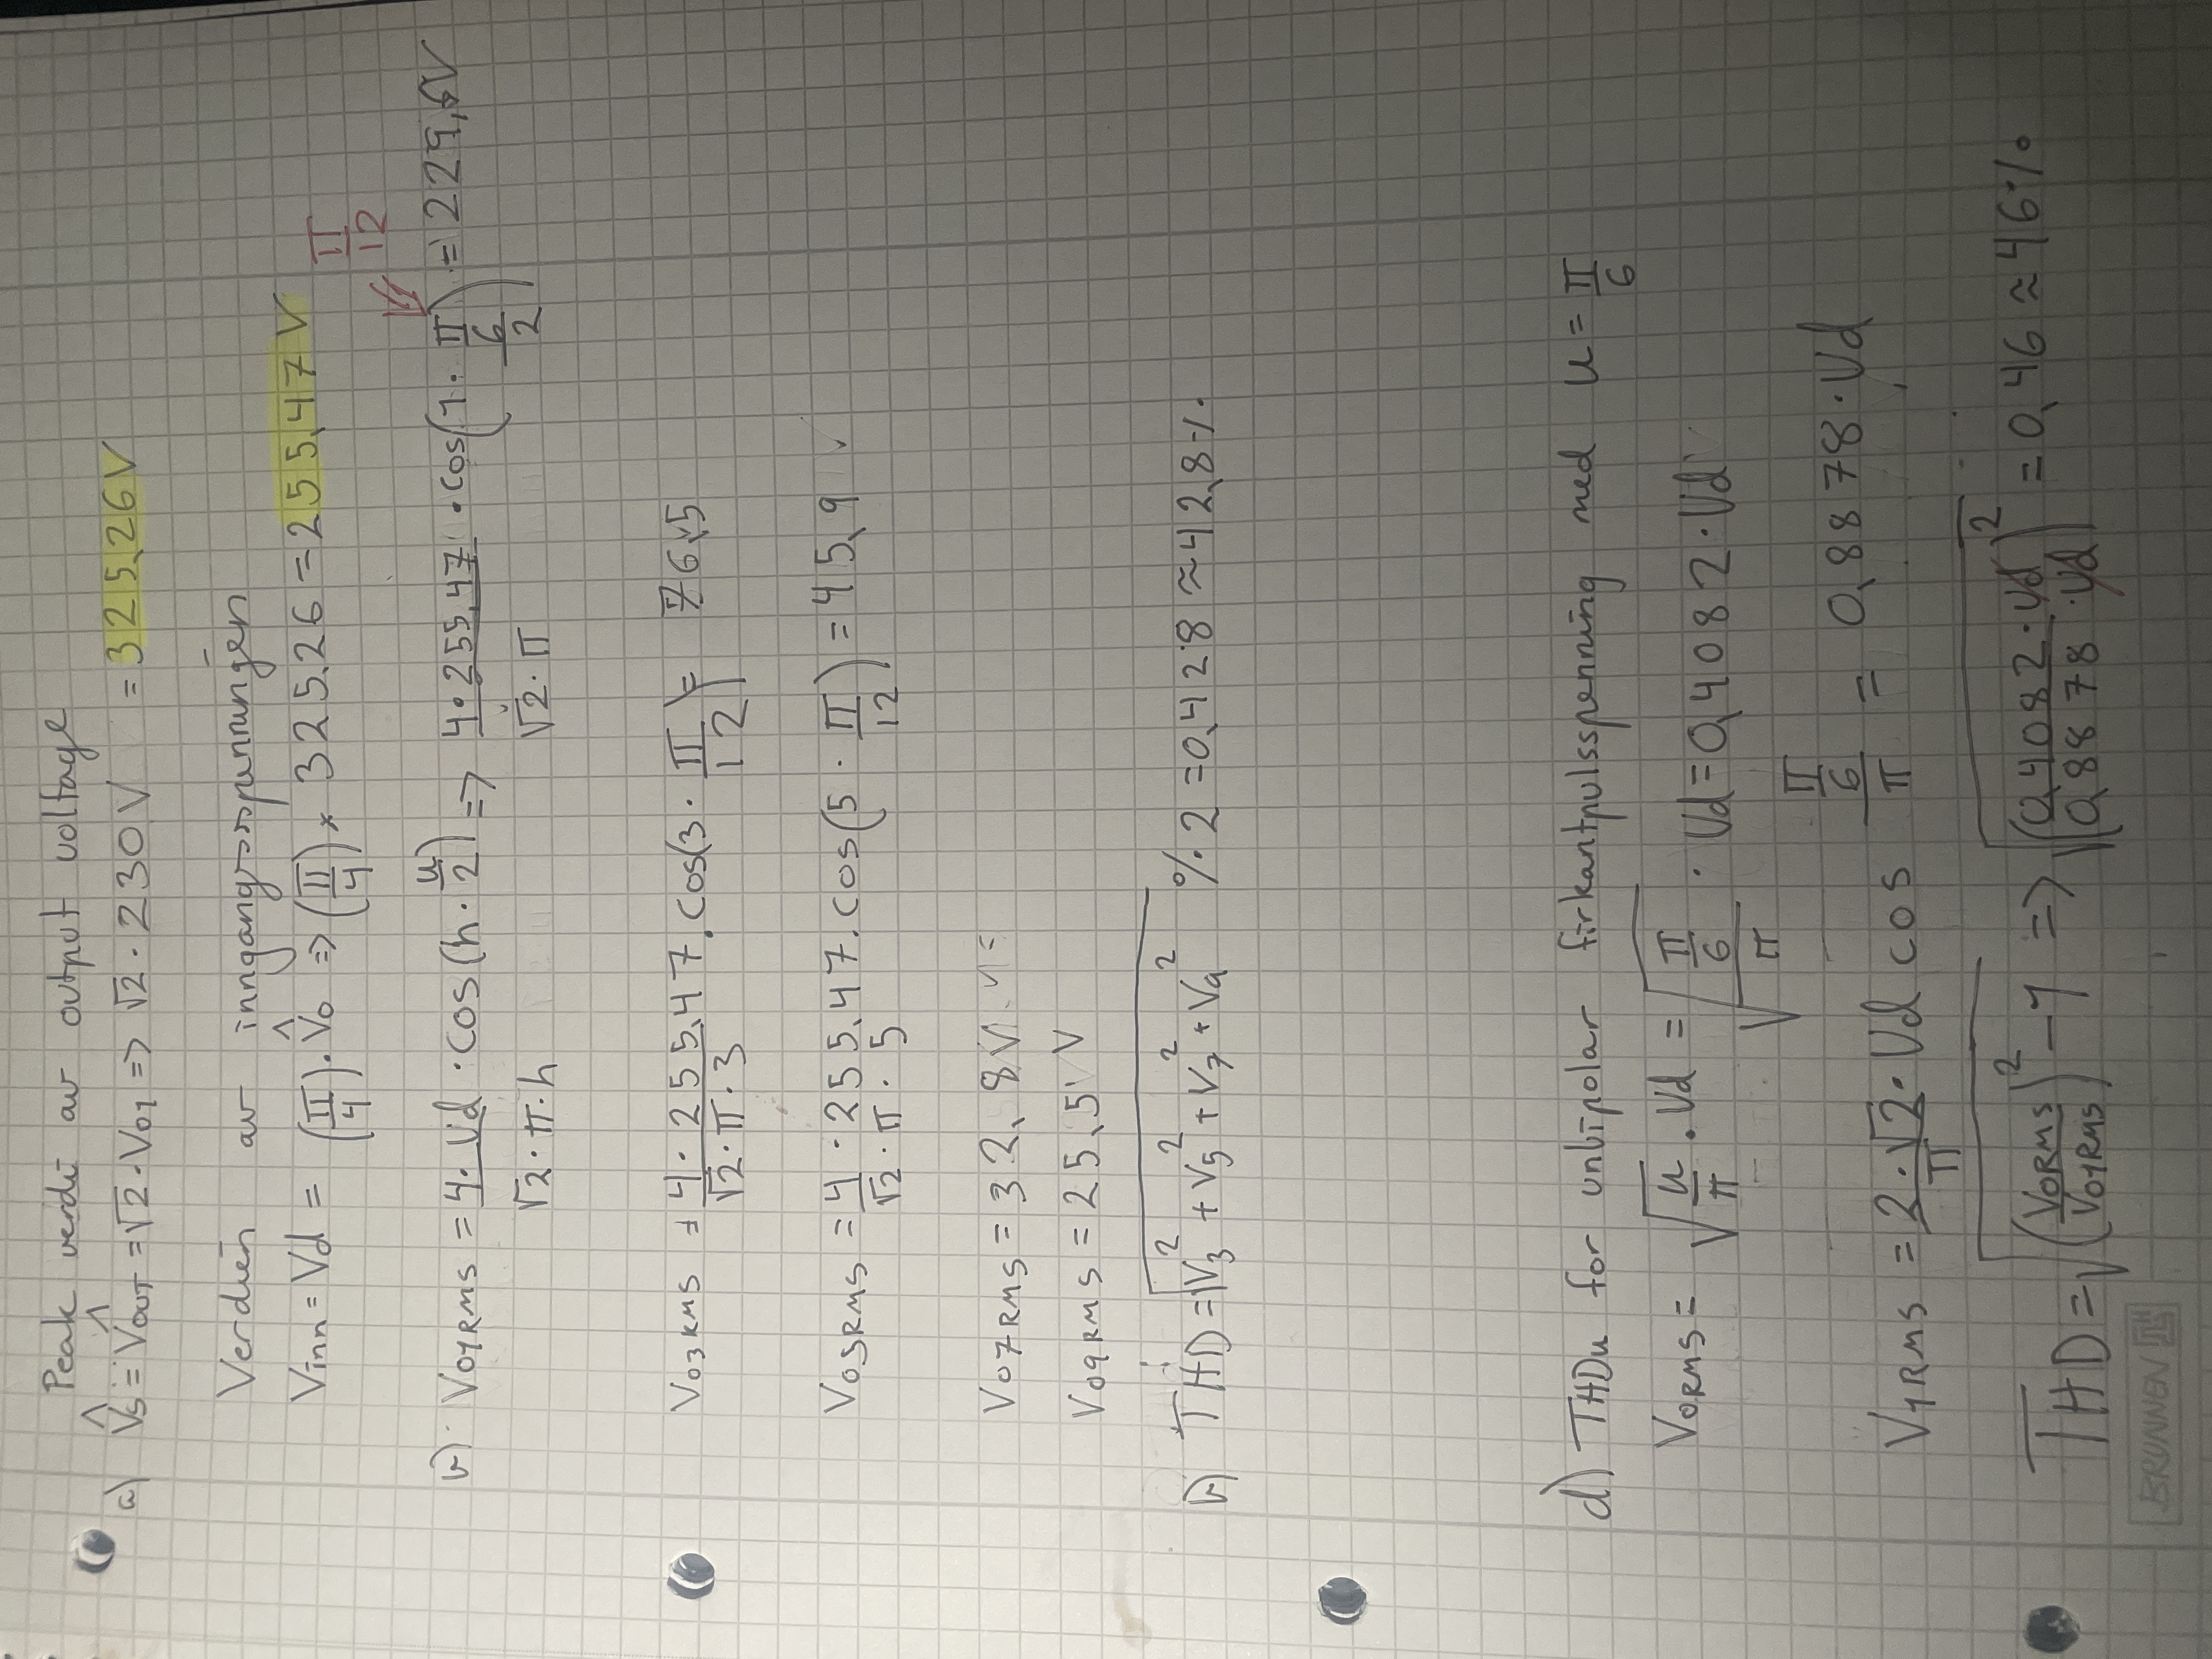 Peak verdi av output voltage
a) V̂s = V̂out = √2 · Vo1 => √2 · 230V = 325,26V
Verdien av inngangsspenningen
Vinn = Vd = (π/4) · V̂o => (π/4) × 325,26 = 255,47V
π/12
b) Vo1RMS = 4·Vd/(√2·π·h) · cos(h·u/2) => 4·255,47/(√2·π) · cos(1·(π/6)/2) = 229,6V
Vo3RMS = 4·255,47/(√2·π·3) · cos(3·π/12) = 76,5
Vo5RMS = 4·255,47/(√2·π·5) · cos(5·π/12) = 45,9
Vo7RMS = 32,8V
Vo9RMS = 25,5V
b) THD = √(V3² + V5² + V7² + V9²) %·2 = 0,428 ≈ 42,8%
d) THDu for unbipolar firkantpulsspenning med u = π/6
VoRMS = √(u/π) · Vd = √((π/6)/π) · Vd = 0,4082 · Vd
V1RMS = 2·√2/π · Vd cos (π/6)/π = 0,8878 · Vd
THD = √((VoRMS/Vo1RMS)² - 1) => √((0,4082·Vd)/(0,8878·Vd))² = 0,46 ≈ 46%
BRUNNEN